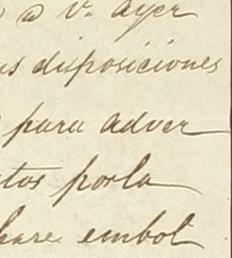 a V. ayer
us disposiciones
para adver
tos porla
hare embol